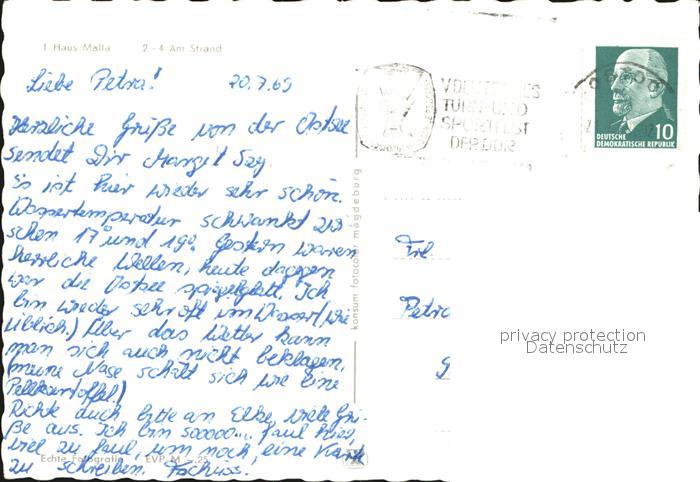 1 Haus Malta 2-4 Am Strand
Liebe Petra! 20.7.69
Herzliche Grüße von der Ostsee
sendet Dir Margit
Es ist hier wieder sehr schön.
Wassertemperatur schwankt zwi-
schen 17° und 19°. Gestern waren
herrliche Wellen, heute dagegen
war die Ostsee spiegelglatt. Ich
bin wieder sehr oft im Wasser (wie
üblich.) Über das Wetter kann
man sich auch nicht beklagen,
(meine Nase schält sich wie eine
Pellkartoffel.)
Richte auch bitte an Elke viele Grü-
ße aus. Ich bin sooooo... faul hier,
viel zu faul, um noch eine Karte
zu schreiben. Tschüss.
Echte Fotografie EVP M -.25
konsum fotocolor magdeburg
V. DEUTSCHES
TURN- UND
SPORTFEST
DER DDR
DEUTSCHE
DEMOKRATISCHE REPUBLIK
10
Frl.
Petra
privacy protection
Datenschutz